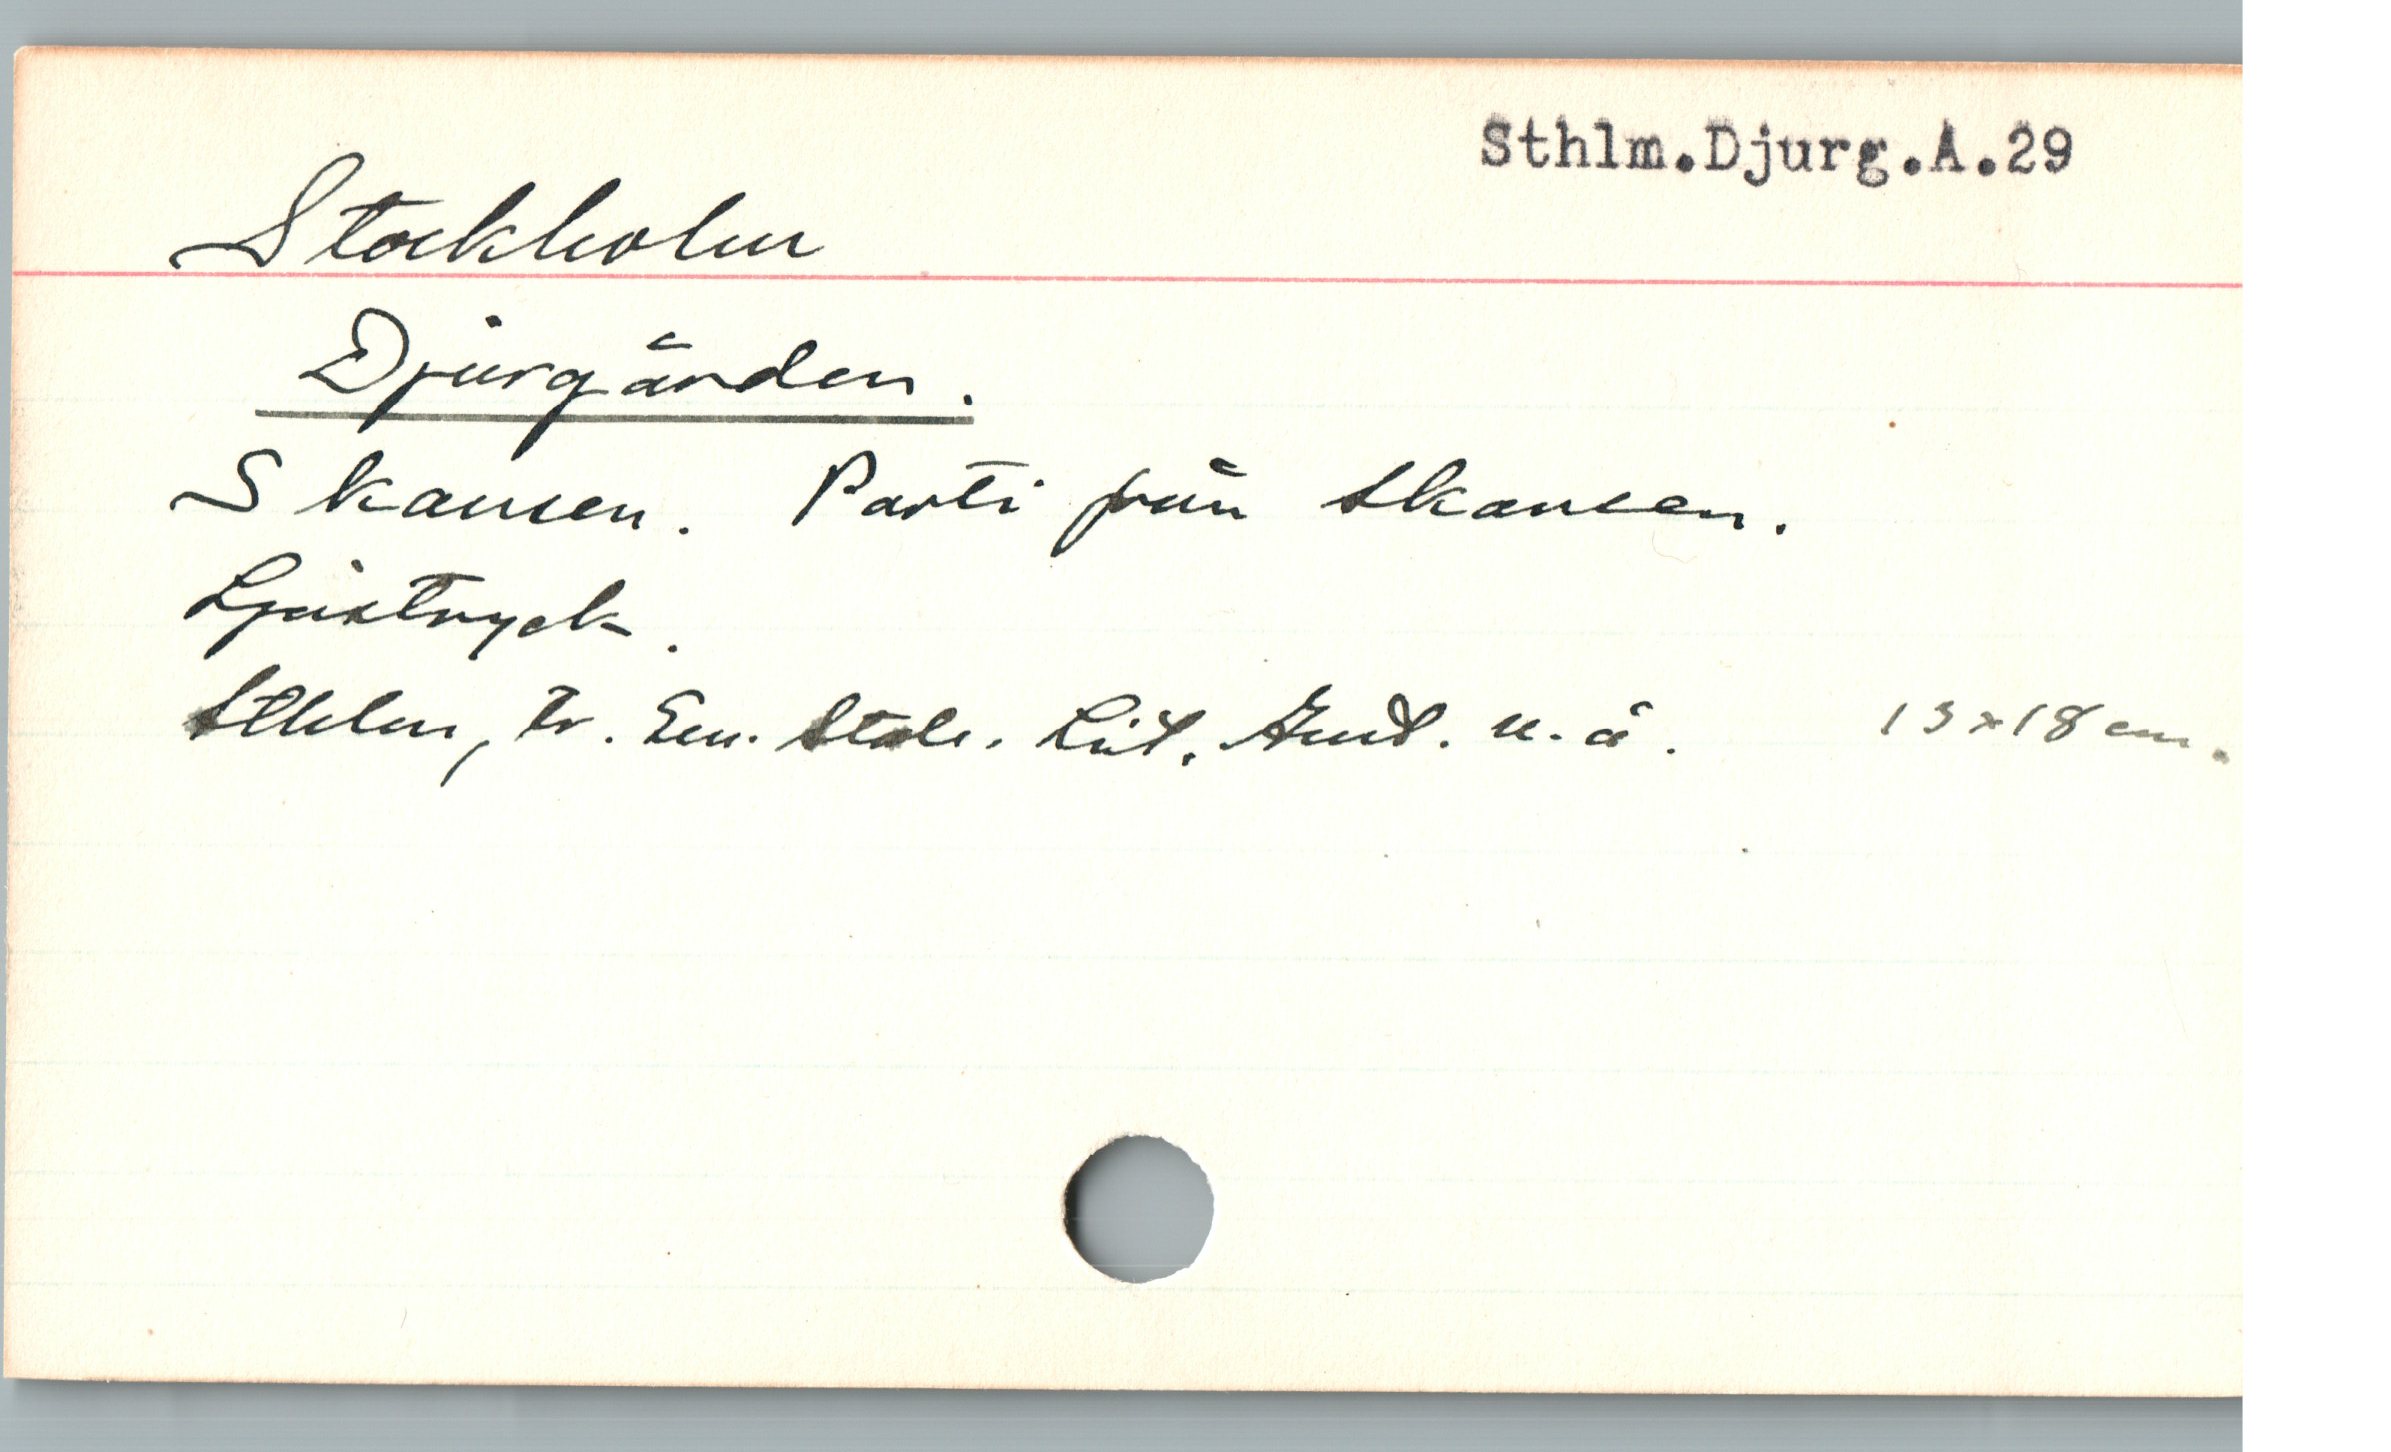 Sthlm.Djurg.A.29
Stockholm
Djurgården.
Skansen. Parti från Skansen.
Ljustryck.
Sthlm, tr. Gen. Stab. Lit. Anst. u.å. 13x18 cm.